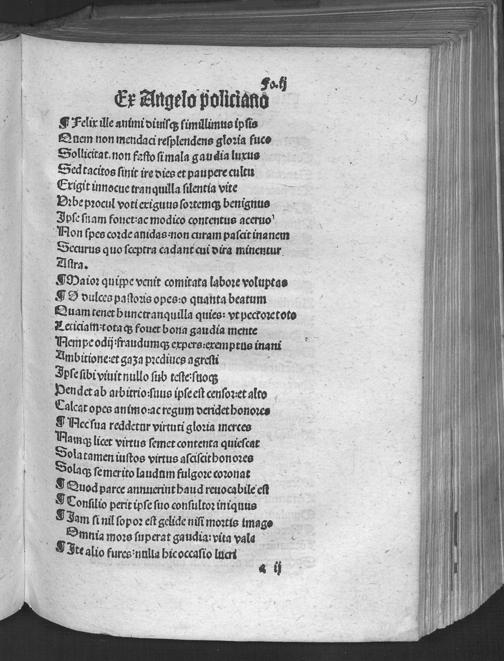 Fo.ij
Ex Angelo policiano
¶ Felix ille animi diuisqꝫ simillimus ipsis
Quem non mendaci resplendens gloria fuco
Sollicitat. non fasto si mala gaudia luxus
Sed tacitos sinit ire dies et paupere cultu
Exigit innocue tranquilla silentia vite
Vrbe procul voti exiguus sortemqꝫ benignus
Ipse suam fouet: ac modico contentus aceruo
Non spes corde auidas: non curam pascit inanem
Securus quo sceptra cadant cui dira minentur
Astra.
¶ Maior quippe venit comitata labore voluptas
¶ O dulces pastoris opes: o quanta beatum
Quam tenet hunc tranquilla quies: vt pectore toto
Leticiam: totaqꝫ fouet bona gaudia mente
Nempe odij: fraudumqꝫ expers: exemptus inani
Ambitione: et gaza prediues agresti
Ipse sibi viuit nullo sub teste: suoqꝫ
Pendet ab arbitrio: suus ipse est censor: et alto
Calcat opes animo: ac regum deridet honores
¶ Nec sua reddetur virtuti gloria merces
Namqꝫ licet virtus semet contenta quiescat
Sola tamen iustos virtus asciscit honores
Solaqꝫ se merito laudum fulgore coronat
¶ Quod parce annuerint haud reuocabile est
¶ Consilio perit ipse suo consultor iniquus
¶ Iam si nil sopor est gelide nisi mortis imago
Omnia mors superat gaudia: vita vala
¶ Ite alio fures: nulla hic occasio lucri
a ij